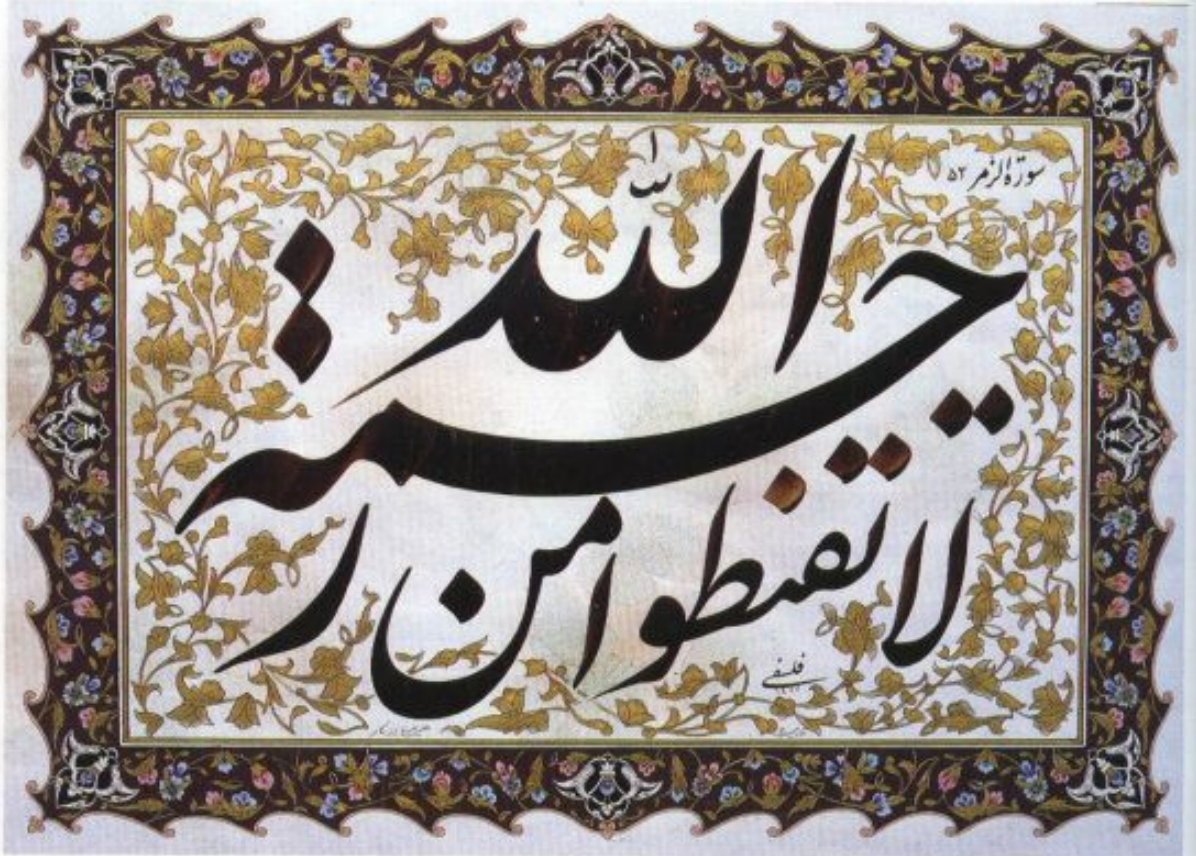 سورة الزمر ۵۲
لا تقنطوا من ر
حمة الله
فلسفی